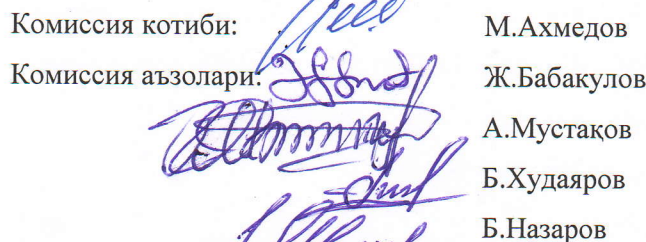 Комиссия котиби: М.Ахмедов
Комиссия аъзолари: Ж.Бабакулов
А.Мустақов
Б.Худаяров
Б.Назаров